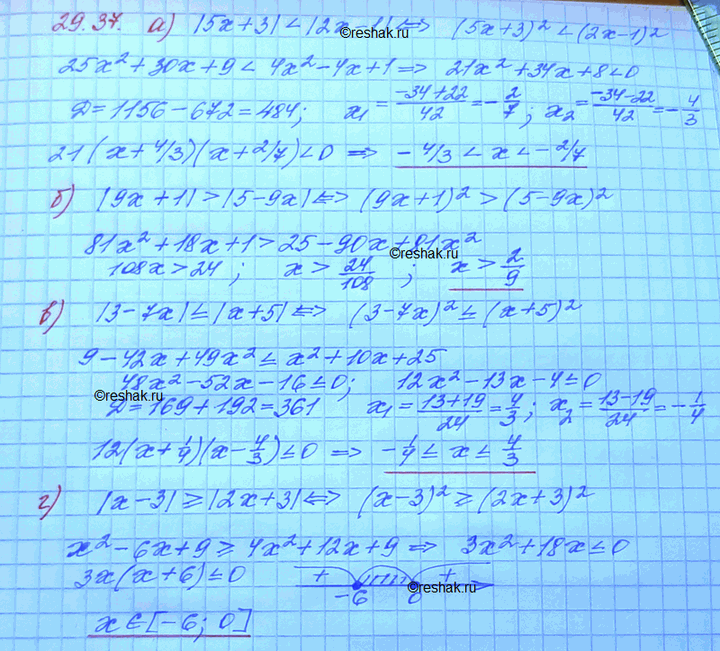 29.37. а) |5x+3| < |2x-1| <=> (5x+3)² < (2x-1)²
©reshak.ru
25x²+30x+9 < 4x²-4x+1 => 21x²+34x+8<0
D=1156-672=484; x₁ = (-34+22)/42 = -2/7; x₂ = (-34-22)/42 = -4/3
21(x+4/3)(x+2/7)<0 => -4/3 < x < -2/7
б) |9x+1| > |5-9x| <=> (9x+1)² > (5-9x)²
81x²+18x+1 > 25-90x+81x²
©reshak.ru
108x > 24; x > 24/108; x > 2/9
в) |3-7x| ≤ |x+5| <=> (3-7x)² ≤ (x+5)²
9-42x+49x² ≤ x²+10x+25
48x²-52x-16≤0; 12x²-13x-4≤0
©reshak.ru
D=169+192=361 x₁ = (13+19)/24 = 4/3; x₂ = (13-19)/24 = -1/4
12(x+1/4)(x-4/3)≤0 => -1/4 ≤ x ≤ 4/3
г) |x-3| ≥ |2x+3| <=> (x-3)² ≥ (2x+3)²
x²-6x+9 ≥ 4x²+12x+9 => 3x²+18x≤0
3x(x+6)≤0 + - 6 0 +
©reshak.ru
x∈[-6; 0]
©reshak.ru